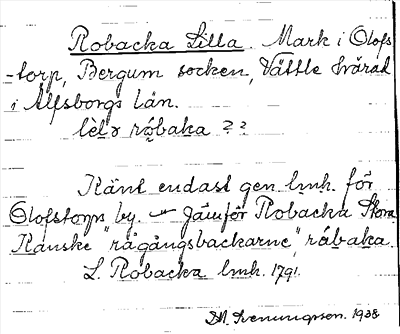 Robacka Lilla. Mark i Olofs
-torp, Bergum socken, Vättle härad
i Älfsborgs län.
lèlɘ ró̱baka ??
Känt endast gen. lmk. för
Olofstorps by. — Jämför Robacka Stora
Kanske "rågångsbackarne", råbaka.
L. Robacka lmk. 1791.
D.A. Svenungsson. 1938